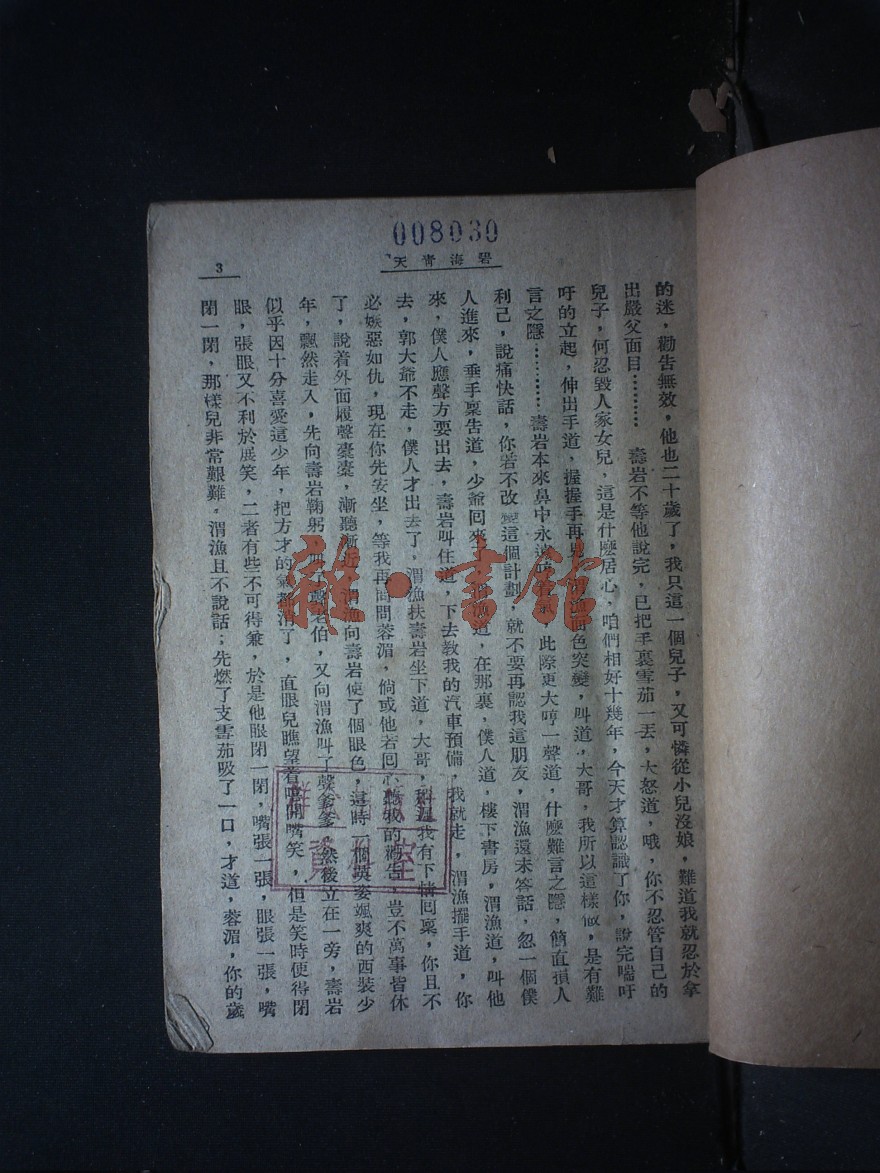 008030
碧海青天
3
的迷，勸告無效，他也二十歲了，我只這一個兒子，又可憐從小兒沒娘，難道我就忍於拿
出嚴父面目………　壽岩不等他說完，已把手裏雪茄一丟，大怒道，哦，你不忍管自己的
兒子，何忍毀人家女兒，這是什麼居心，咱們相好十幾年，今天才算認識了你，說完喘吁
吁的立起，伸出手道，握握手再見，面色突變，叫道，大哥，我所以這樣做，是有難
言之隱…………　壽岩本來鼻中永遠，此際更大哼一聲道，什麼難言之隱，簡直損人
利己，說痛快話，你若不改變這個計劃，就不要再認我這朋友，渭漁還未答話，忽一個僕
人進來，垂手稟告道，少爺回來了，渭漁道，在那裏，僕人道，樓下書房，渭漁道，叫他
來，僕人應聲方要出去，壽岩叫住道，下去教我的汽車預備，我就走，渭漁擺手道，你
去，郭大爺不走，僕人才出去了，渭漁扶壽岩坐下道，大哥，我有下情回稟，你且不
必嫉惡如仇，現在你先安坐，等我再問問蓉湄，倘或他若回心聽我的勸告，豈不萬事皆休
了，說着外面履聲橐橐，漸聽漸近，渭漁向壽岩使了個眼色，這時一個英姿颯爽的西裝少
年，飄然走入，先向壽岩鞠躬，叫了聲老伯，又向渭漁叫了聲爹爹，然後立在一旁，壽岩
似乎因十分喜愛這少年，把方才的氣都消了，直眼兒瞧望着他開嘴笑，但是笑時便得閉
眼，張眼又不利於展笑，二者有些不可得兼，於是他眼閉一閉，嘴張一張，眼張一張，嘴
閉一閉，那樣兒非常艱難。渭漁且不說話；先燃了支雪茄吸了一口，才道，蓉湄，你的歲
雜·書館